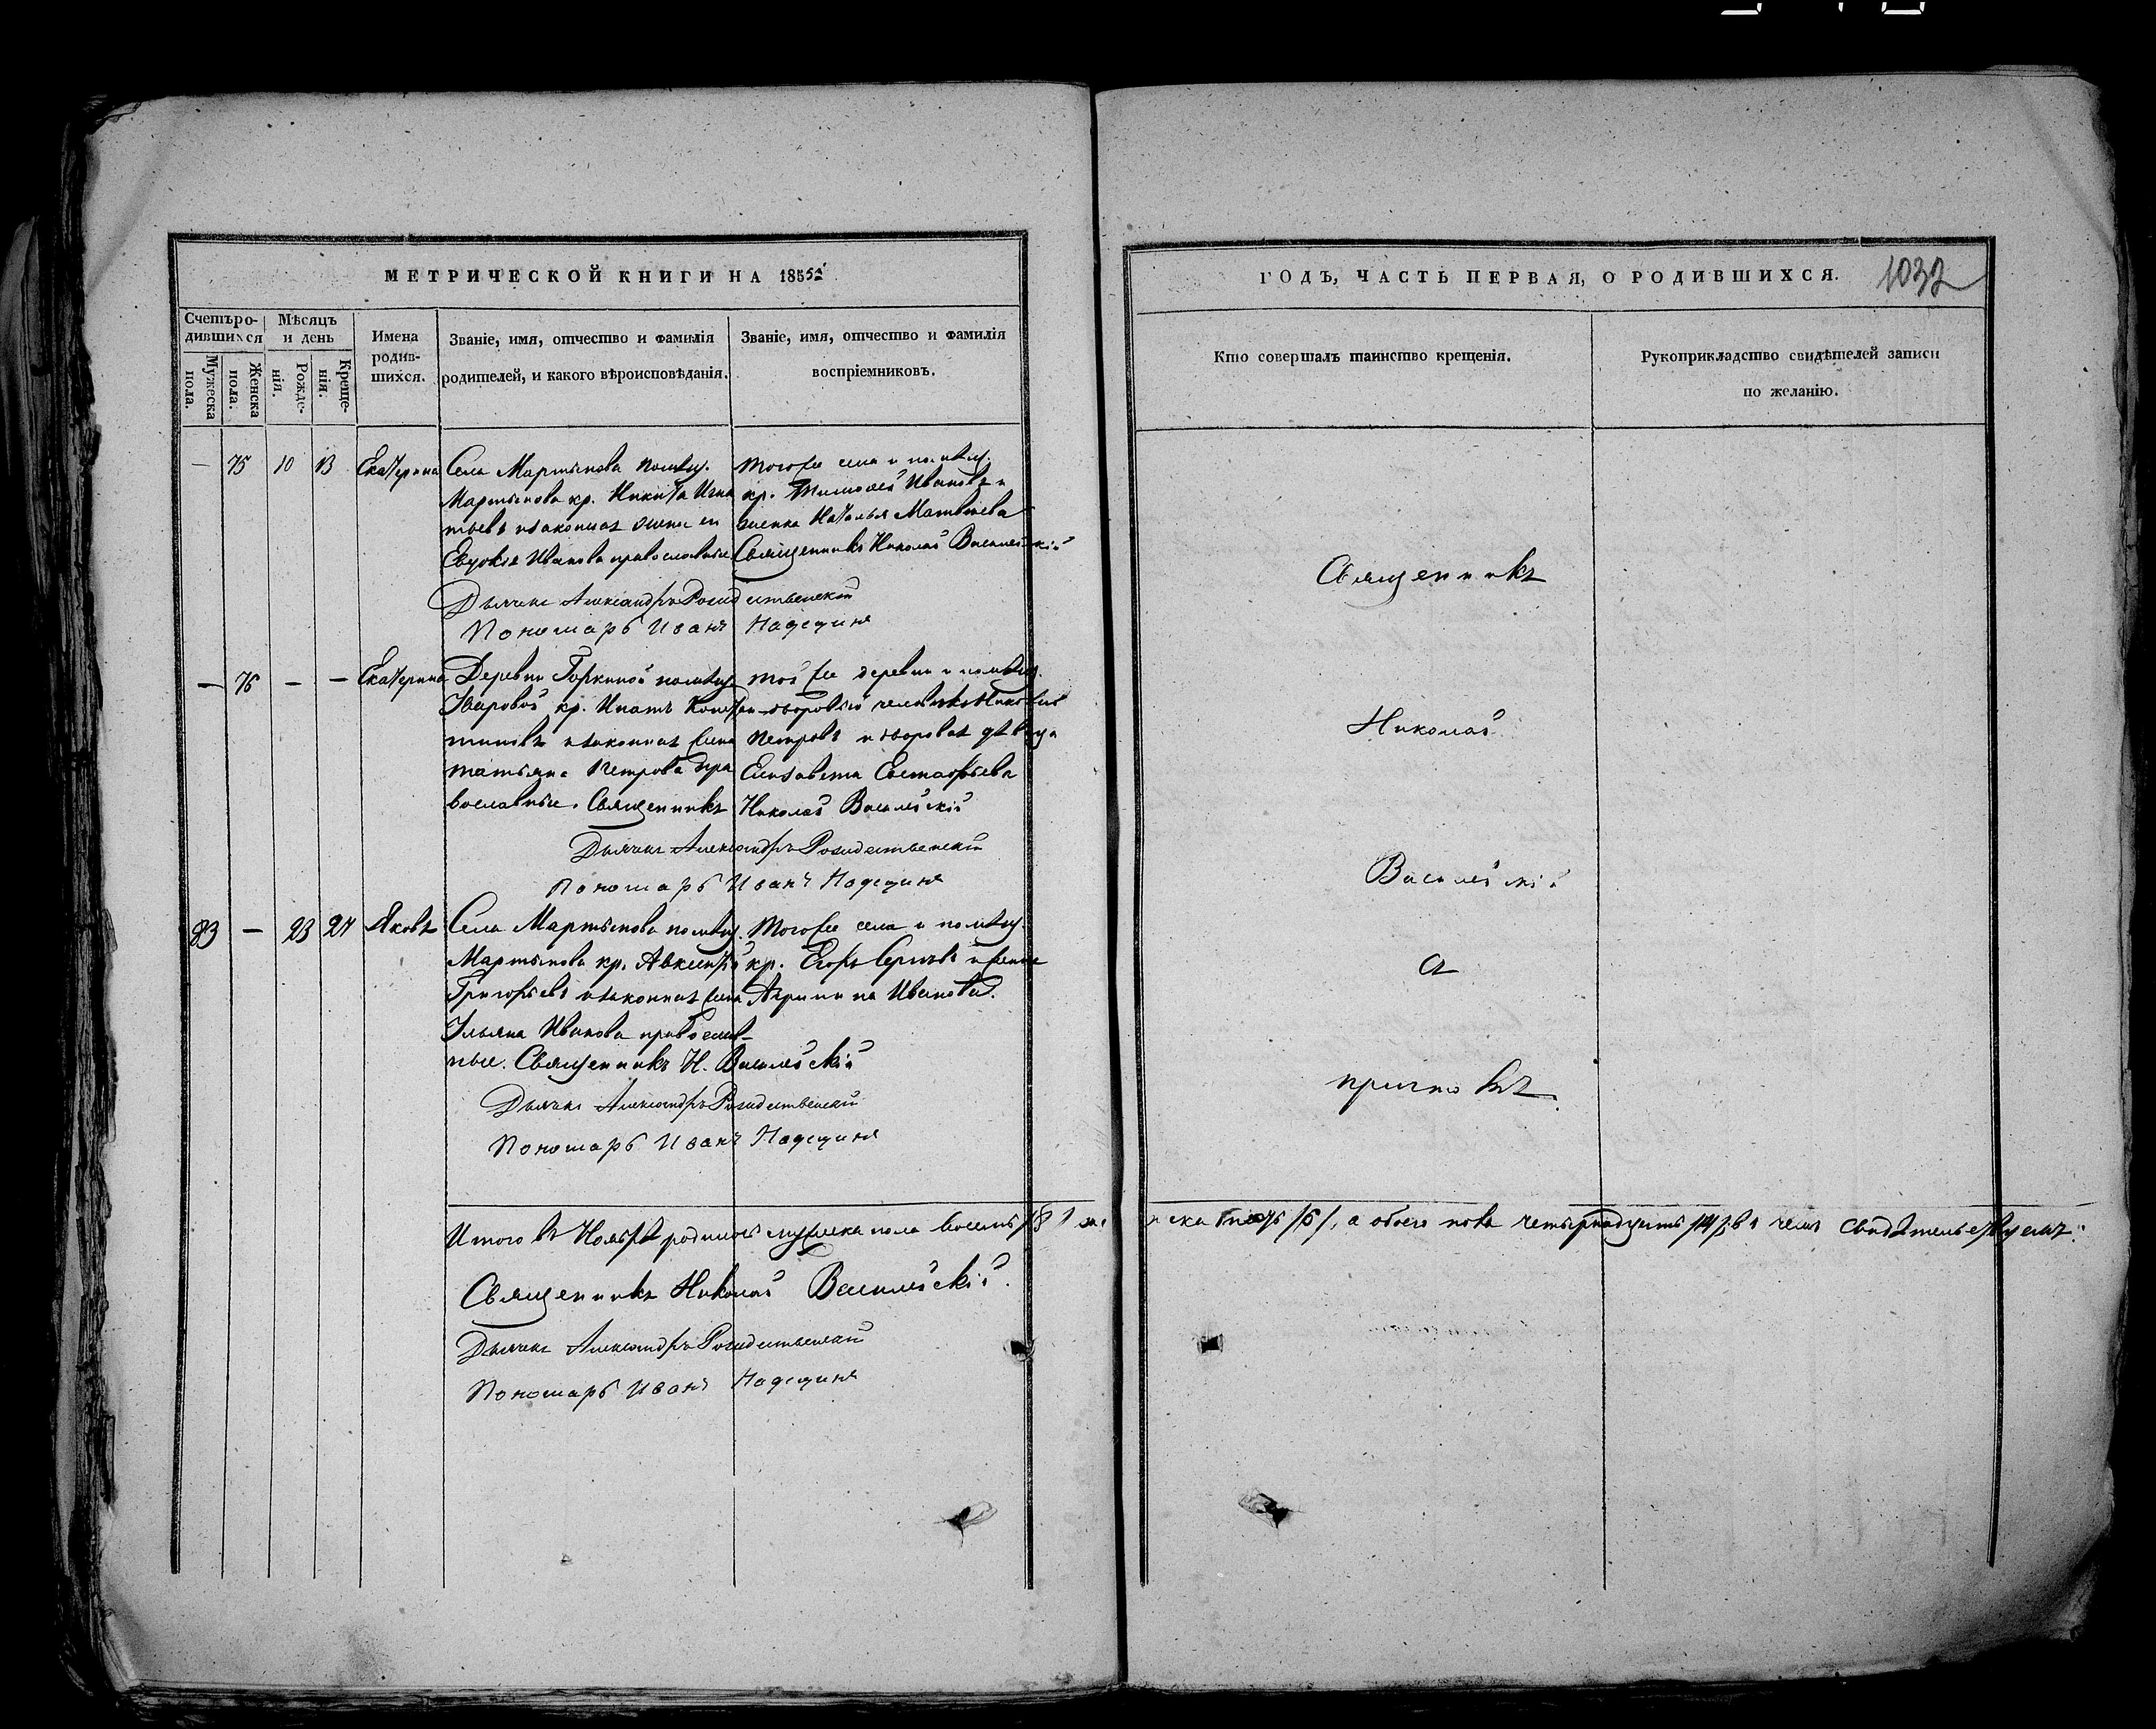 МЕТРИЧЕСКОЙ КНИГИ НА 1855й
Счетъ родившихся
Мѣсяцъ и день
Имена родившихся.
Званіе, имя, отчество и фамилія родителей, и какого вѣроисповѣданія.
Званіе, имя, отчество и фамилія воспріемниковъ.
Мужеска пола.
Женска пола.
Рожденія.
Крещенія.
— 75 10 13 Екатерина
Села Мартынова помѣщ.
Мартынова кр. Никита Игна
тьевъ и законная жена ея
Евдокія Иванова православные
Тогоже села и помѣщ.
кр. Тимофей Ивановъ и
женка Наталья Матвѣева
Священникъ Николай
Дьячекъ Александръ Рождественскій
Пономарь Иванъ Надеждинъ
— 76 — — Екатерина
Деревни Горкиной помѣщ.
Уваровой кр. Игнатъ Констан
тиновъ и законная жена
Татьяна Петрова пра
вославные. Священникъ Николай
Тойже деревни и помѣщ.
дворовый человѣкъ
Петровъ и дворовая дѣвица
Елизавета Евстафьева
Дьячекъ Александръ Рождественскій
Пономарь Иванъ Надеждинъ
83 — 23 24 Яковъ
Села Мартынова помѣщ.
Мартынова кр. Авксентій
Григорьевъ и законная жена
Ульяна Иванова православ-
ные. Священникъ Н.
Тогоже села и помѣщ.
кр. Егоръ и женка
Акрипина Иванова.
Дьячекъ Александръ Рождественскій
Пономарь Иванъ Надеждинъ
Итого въ Ноябрѣ родилось мужеска пола восемь /8/ же
Священникъ Николай
Дьячекъ Александръ Рождественскій
Пономарь Иванъ Надеждинъ
ГОДЪ, ЧАСТЬ ПЕРВАЯ, О РОДИВШИХСЯ.
1032
Кто совершалъ таинство крещенія.
Рукоприкладство свидѣтелей записи по желанію.
Священникъ
Николай
съ
причтомъ
нска /6/, а обоего пола четырнадцать /14/; въ чемъ свидѣтельствуемъ: